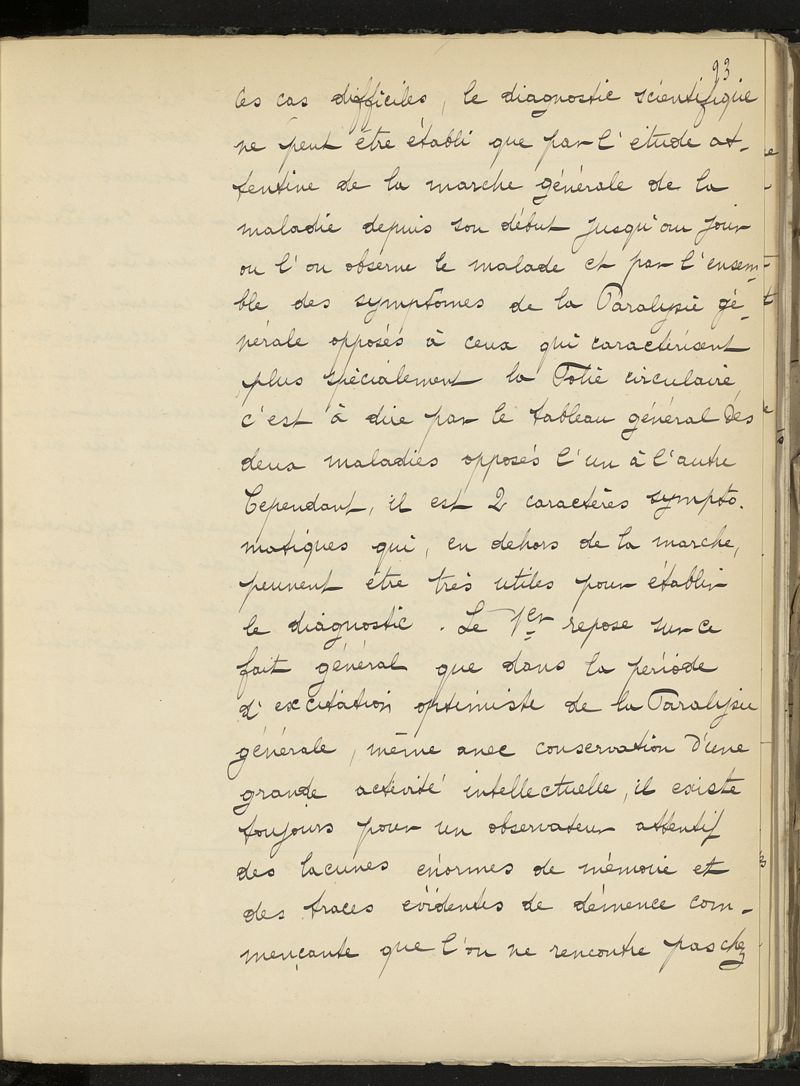 93
les cas difficiles, le diagnostic scientifique
ne peut être établi que par l'étude at-
tentive de la marche générale de la
maladie depuis son début jusqu'au jour
ou l'on observe le malade et par l'ensem-
ble des symptômes de la Paralysie gé-
nérale opposés à ceux qui caractérisent
plus spécialement la Folie circulaire
c'est à dire par le tableau général Des
deux maladies opposés l'un à l'autre
Cependant, il est 2 caractères sympto-
matiques qui, en dehors de la marche,
peuvent être très utiles pour établir
le diagnostic. Le 1er repose sur ce
fait général que dans la période
d'excitation optimiste de la Paralysie
générale, même avec conservation D'une
grande activité intellectuelle, il existe
toujours pour un observateur attentif
des lacunes énormes de mémoire et
des traces évidentes de démence com-
mençante que l'on ne rencontre pas chez